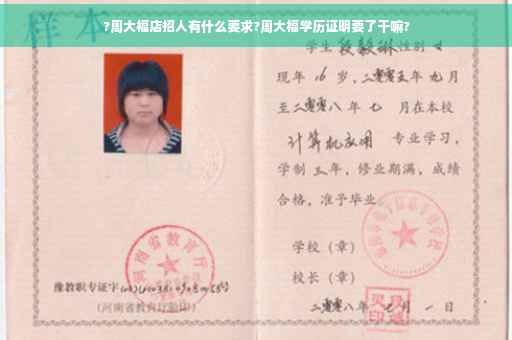 ?周大福店招人有什么要求?周大福学历证明要了干嘛?
样本
学生段毅琳性别女
现年16岁,二零零五年九月
至二零零八年七月在本校
计算机应用 专业学习,
学制三年,修业期满,成绩
合格,准予毕业
学校(章)
校长(章)
二零零八年 月一日
河南省教育厅
豫教职专证字
(河南省教育厅验印)